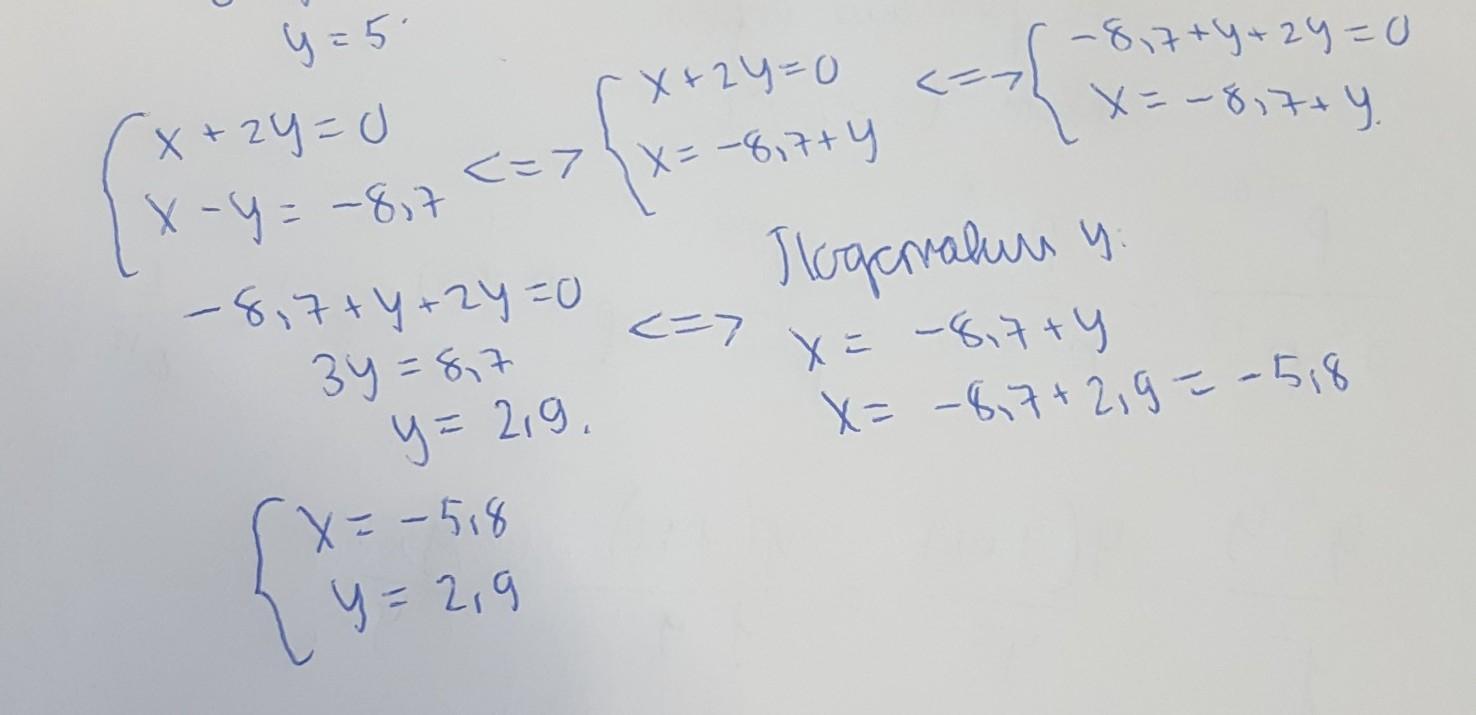 y = 5
{ x + 2y = 0
x - y = -8,7
<=>
{ x + 2y = 0
x = -8,7 + y
<=>
{ -8,7 + y + 2y = 0
x = -8,7 + y.
-8,7 + y + 2y = 0
3y = 8,7
y = 2,9.
<=>
Подставим y:
x = -8,7 + y
x = -8,7 + 2,9 = -5,8
{ x = -5,8
y = 2,9